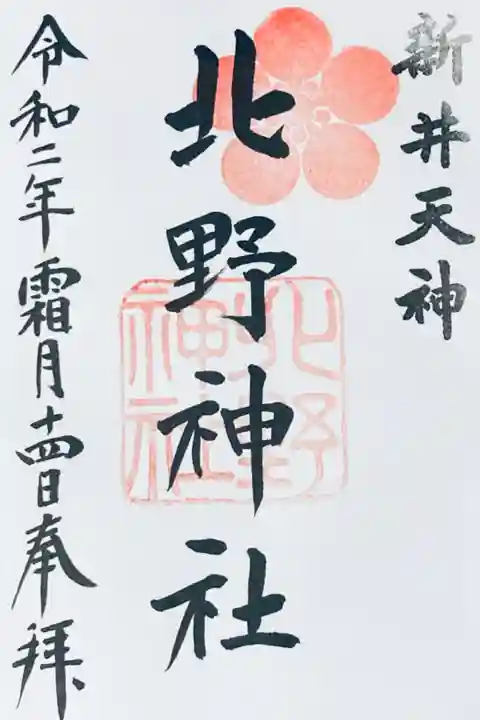 新井天神
北野神社
北野神社
令和二年霜月十四日奉拝